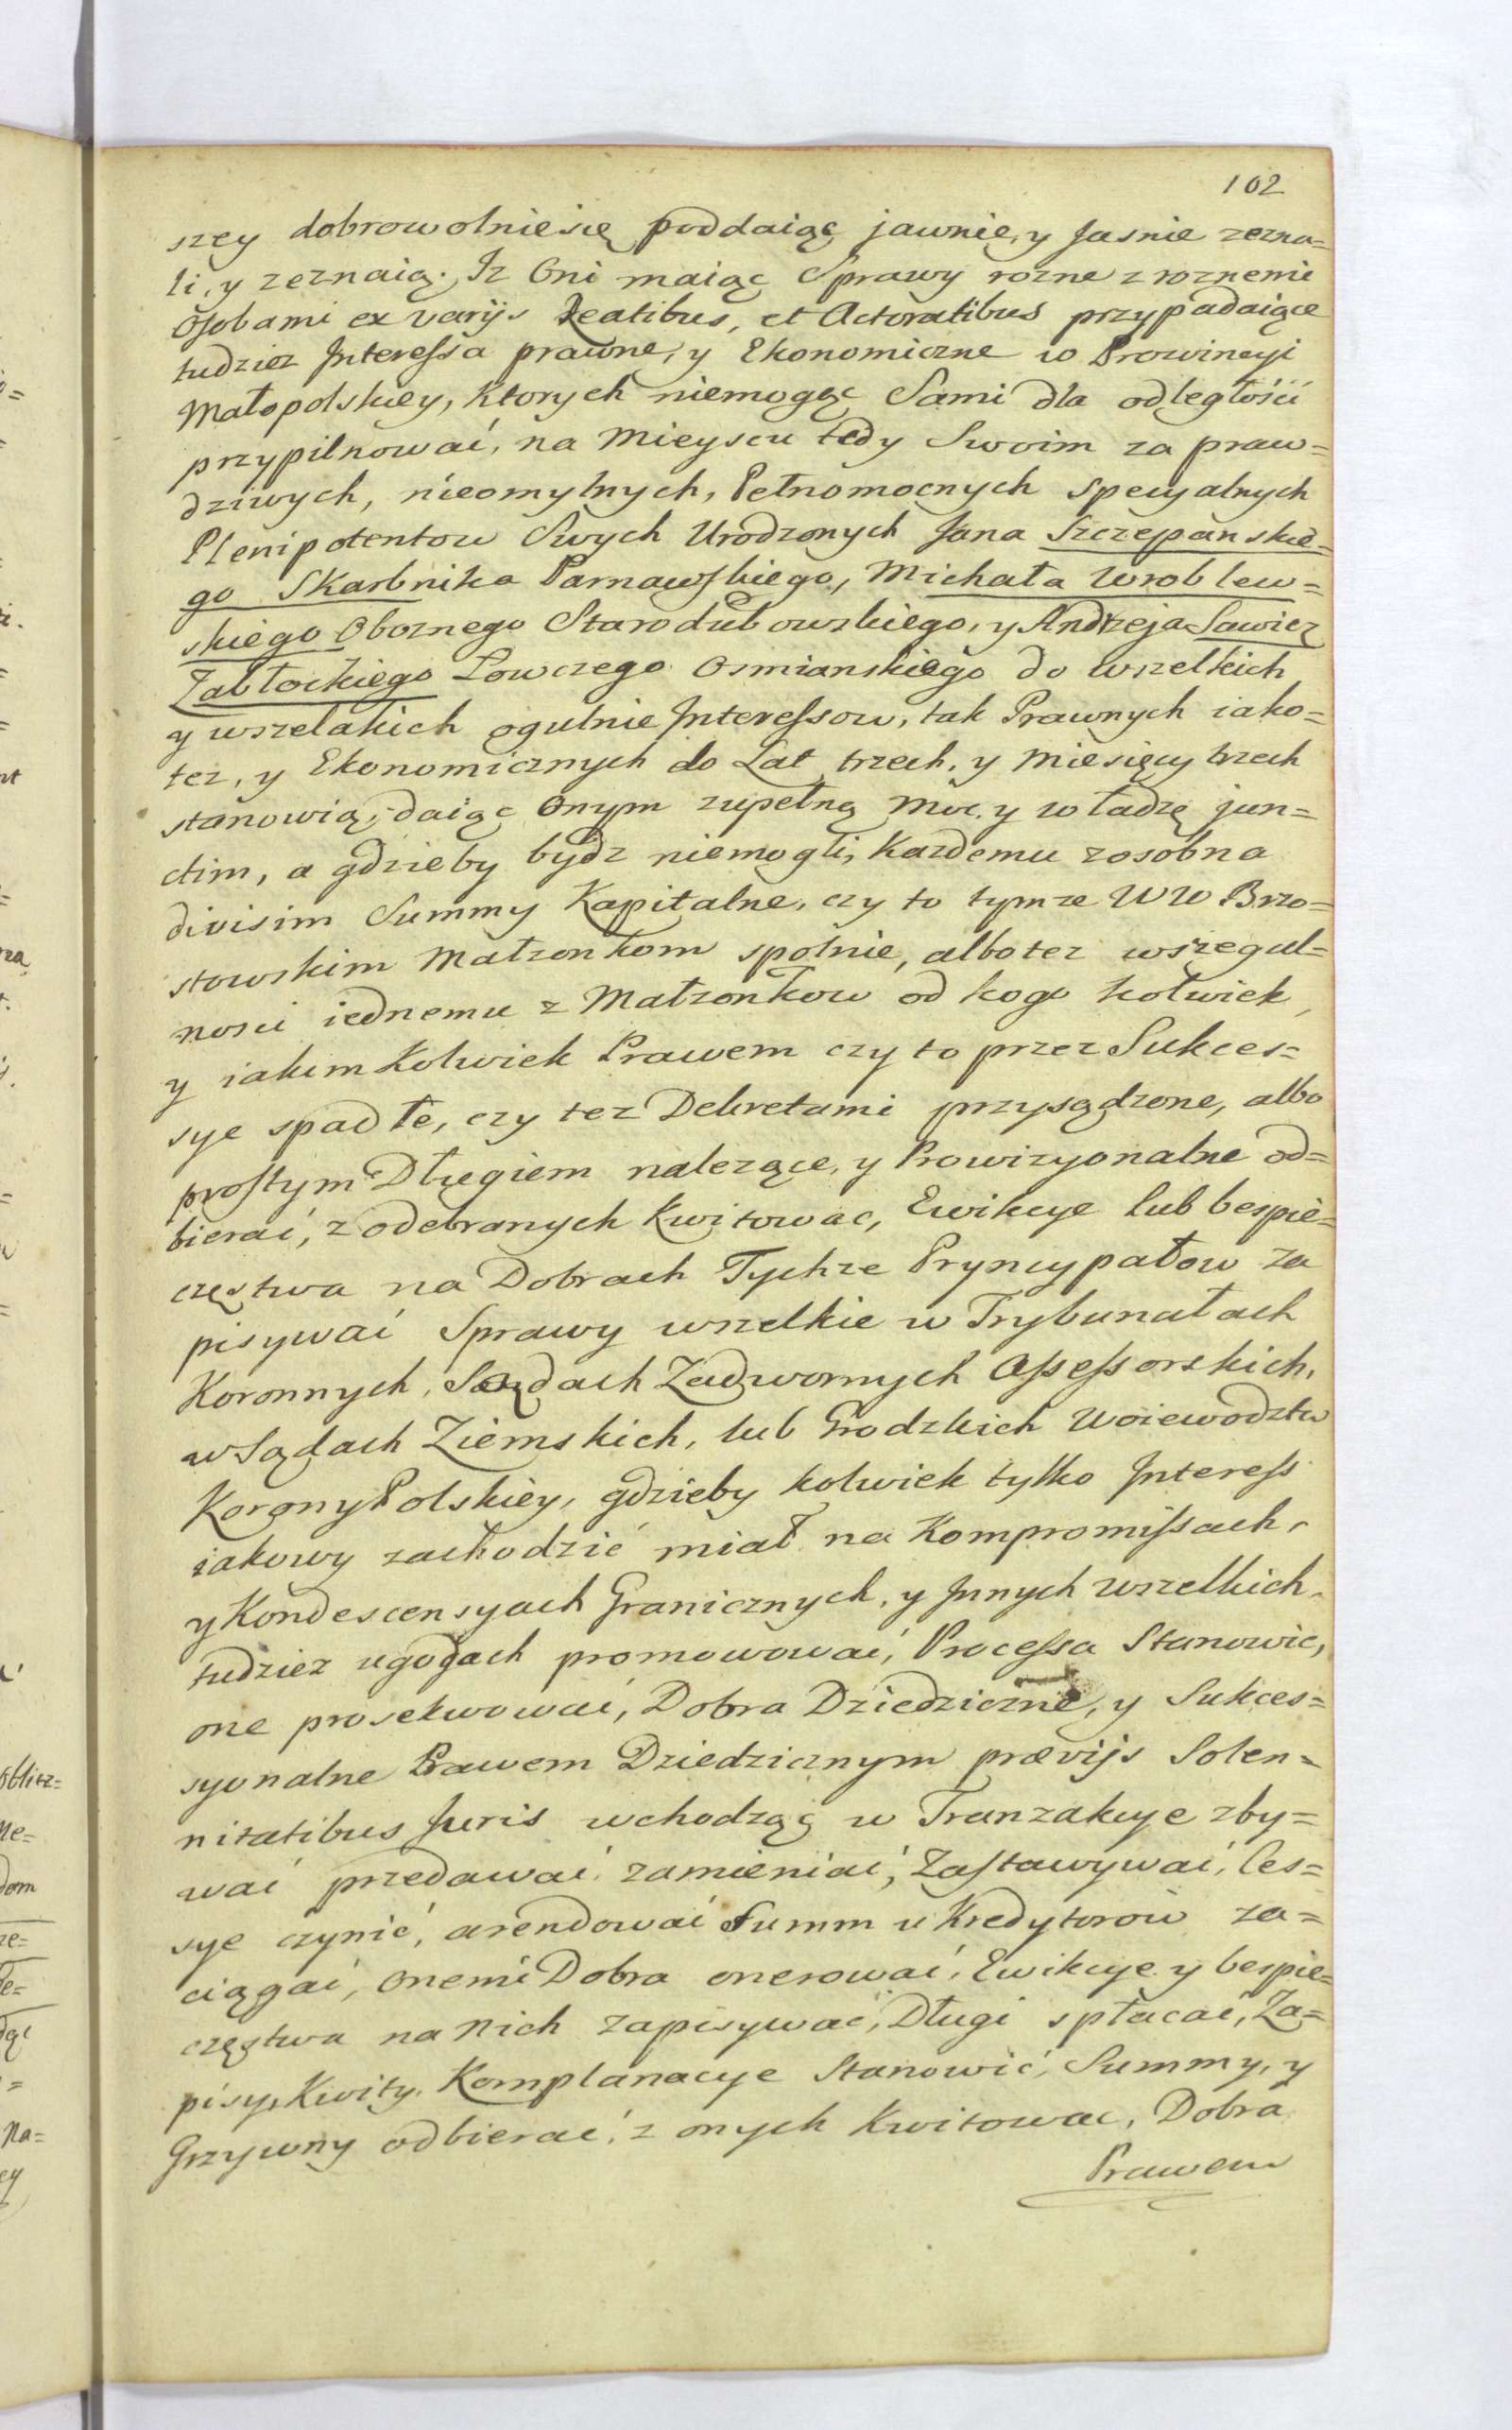 102
szey dobrowolnie się poddaiąc jawnie, y Jasnie zezna=
li, y zeznaią. Iz Oni maiąc Sprawy rozne z roznemi
Osobami ex varijs Reatibus, et Actoratibus przypadaiące
tudziez Interessa prawne, y Ekonomiczne w Prowincyi
Małopolskiey, Ktorych niemogąc Sami dla odległości
przypilnować, na Mieyscu tedy Swoim za praw=
dziwych, nieomylnych, Pełnomocnych Specyalnych
Plenipotentow Swych Urodzonych Jana Szczepanskie=
go Skarbnika Parnawskiego, Michała Wroblew=
skiego Oboznego Starodubowskiego, y Andrzeja Sawicz
Zabłockiego Łowczego Osmianskiego do wszelkich
y wszelakich ogulnie Interessow, tak Prawnych iako=
tez, y Ekonomicznych do Lat trzech, y Miesięcy trzech
stanowią, daiąc Onym zupełną Moc, y władzę jun=
ctim, a gdzieby bydz niemogli, Kazdemu zosobna
divisim Summy Kapitalne, czy to tymze WW Brzo=
stowskim Małzonkom spolnie, albo tez wszegul=
nosci iednemu z Małzonkow od kogo kolwiek,
y iakim Kolwiek Prawem czy to przez Sukces=
sye spadłe, czy tez Dekretami przysądzone, albo
prostym Długiem nalezące, y Prowizyonalne od=
bierać, z odebranych Kwitowac, Ewikcye lub bespie=
częstwa na Dobrach Tychze Pryncypałow za
pisywać Sprawy wszelkie w Trybunałach
Koronnych, Sądach Zadwornych Assessorskich,
w Sądach Ziemskich, lub Grodzkich Woiewodztw
Korony Polskiey, gdzieby kolwiek tylko Interess
iakowy zachodzić miał na Kompromissach,
y Kondescensyach Granicznych, y Innych wszelkich,
tudziez ugodach promowować, Processa Stanowic,
one prosekwować, Dobra Dziedziczne, y Sukces=
syonalne Prawem Dziedzicznym prævijs Solen=
nitatibus Juris wchodząc w Tranzakcye zby=
wać przedawać, zamieniać, Zastawywać, Ces=
sye czynić, arendować Summ u Kredytorow za=
ciągać, onemi Dobra onerować, Ewikcye y bespie=
częstwa na Nich zapisywać, Długi spłacać, Za=
pisy, Kwity, Komplanacye Stanowić, Summy, y
Grzywny odbierać, z onych Kwitowac, Dobra
Prawem